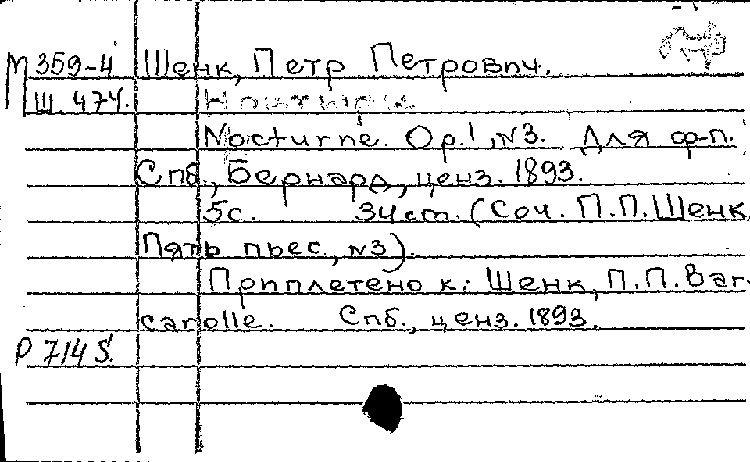 М 359-4 Шенк, Петр Петрович.
Ш. 474. Ноктюрн
Nocturne. Op.1, N3. Для ф-п.
Спб., Бернард, ценз. 1893.
5с. 34 ст. (Соч. П.П. Шенк.
Пять пьес, N3).
Приплетено к: Шенк, П.П. Bar-
carolle. Спб., ценз. 1893.
Р 714 S.